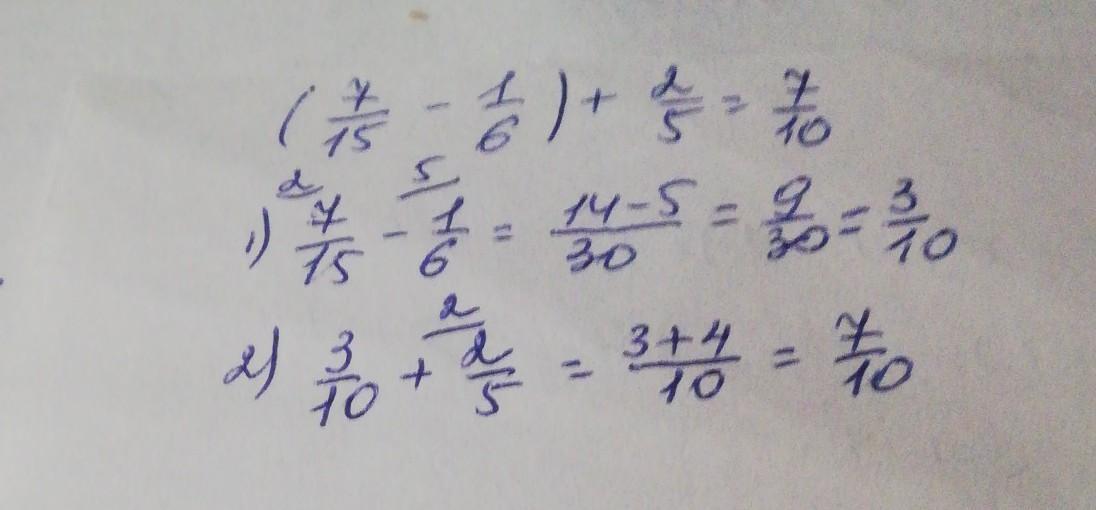 (7/15 - 1/6) + 2/5 = 7/10
1) ²7/15 - ⁵1/6 = (14-5)/30 = 9/30 = 3/10
2) 3/10 + ²2/5 = (3+4)/10 = 7/10